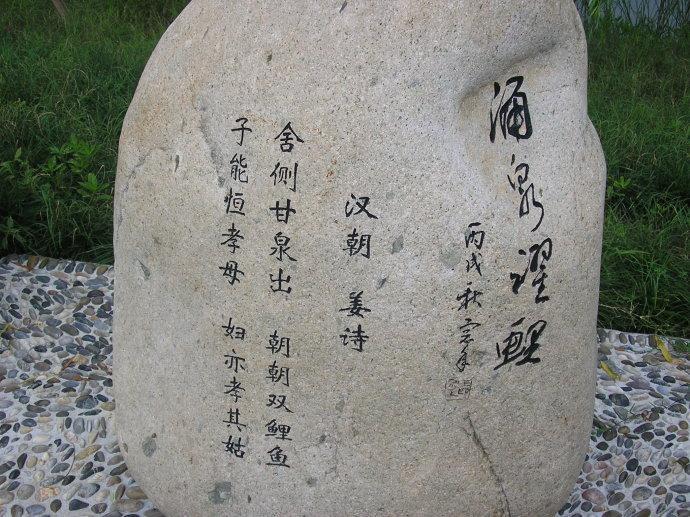 涌泉濯鲤
丙戌秋
汉朝 姜诗
舍侧甘泉出 朝朝双鲤鱼
子能恒孝母 妇亦孝其姑